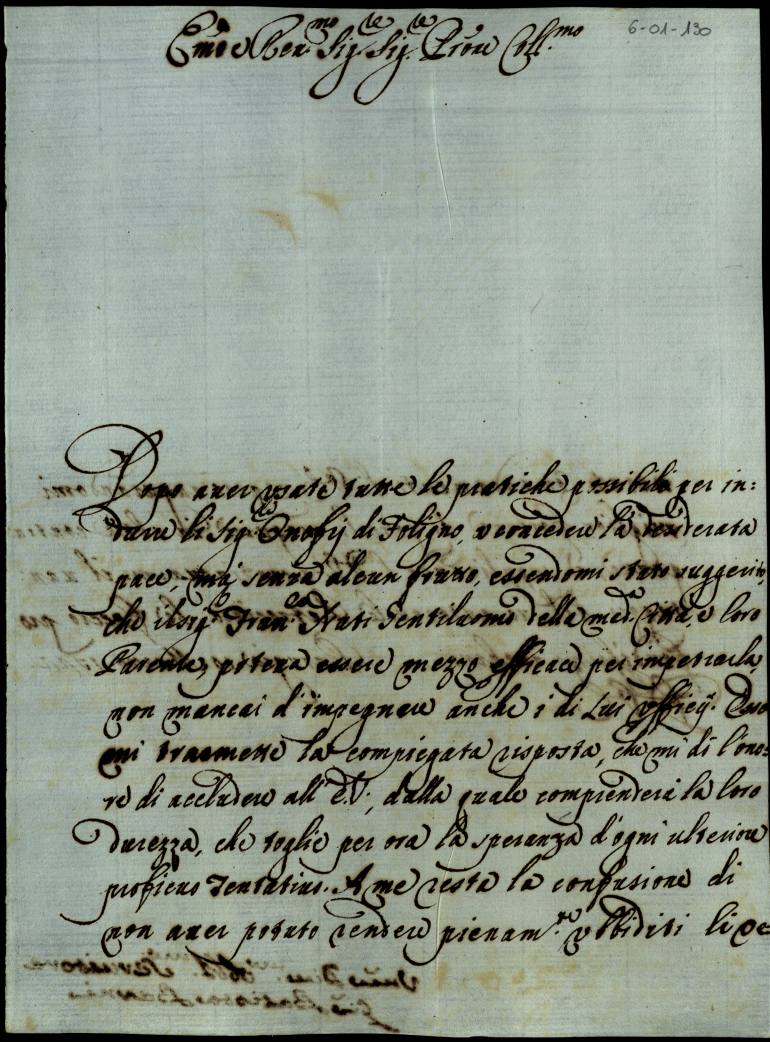 6-01-130
Emo e Reu.mo Sig.re Sig.re Prõne Coll.mo
Dopo auer usate tutte le pratiche possibili per in:
durre li Sig.ri Onofrij di Foligno, a concedere la desiderata
pace, mà senza alcun frutto, essendomi stato suggerito,
che il Sig.r Fran.co Gentiluomo della med.a Città, e loro
Parente, poteua essere mezzo efficace per impetrarla,
non mancai d'impegnare anche i di Lui ufficij. Esso
mi trasmette la compiegata risposta, che mi dò l'ono:
re di accludere all'E.V., dalla quale comprenderà la loro
durezza, che toglie per ora la speranza d'ogni ulteriore
proficuo Tentatiuo. A me resta la confusione di
non auer potuto rendere pienam.te ubbiditi li ue